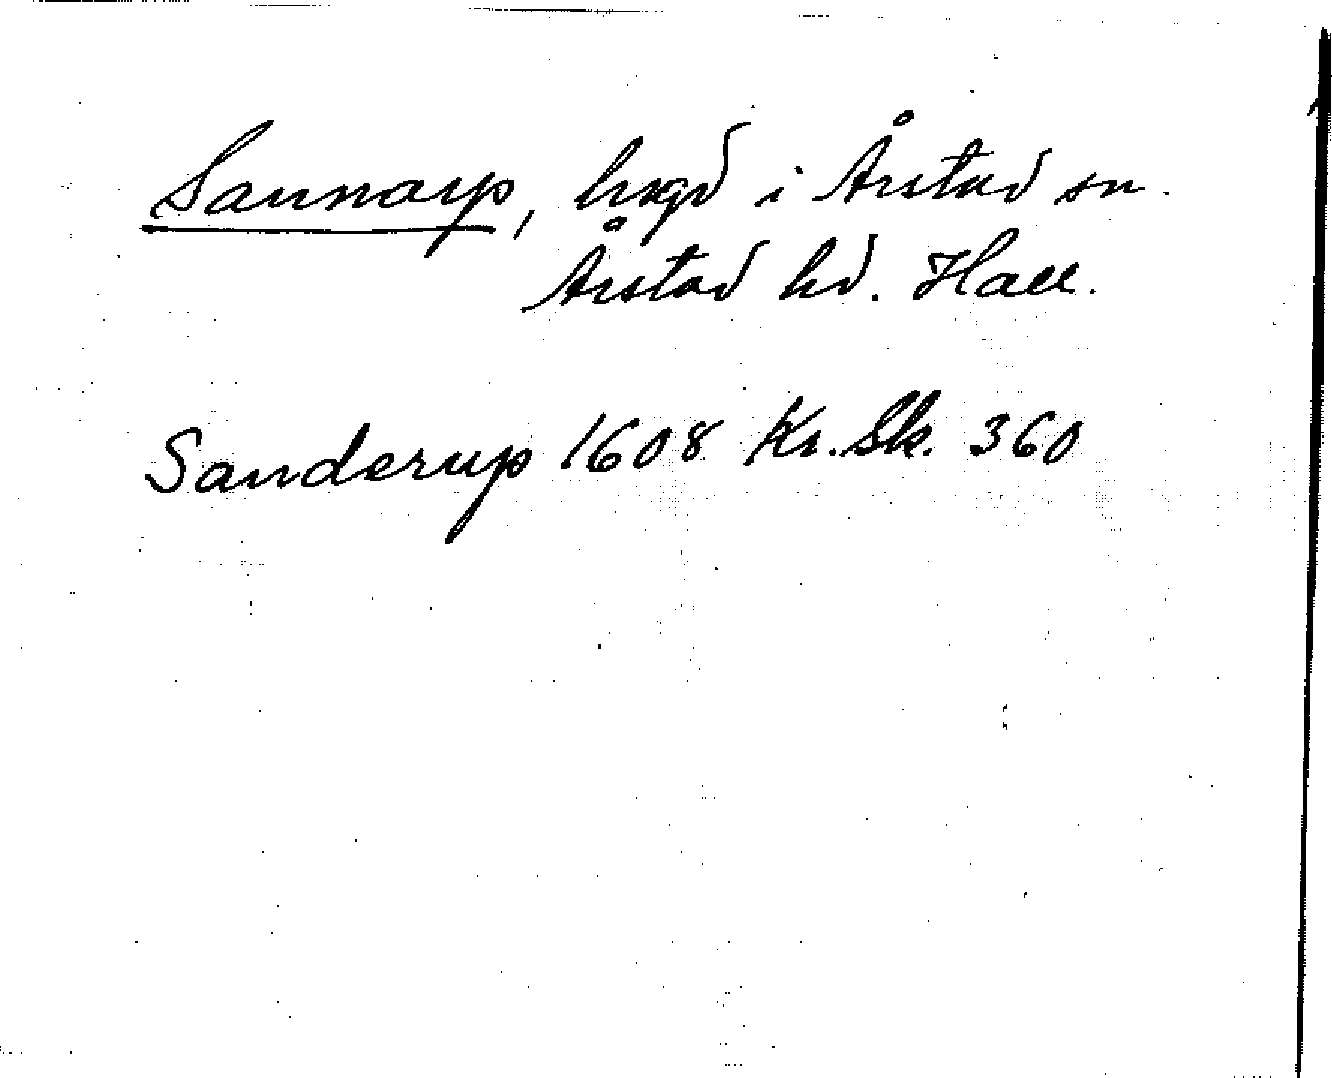 Sannarp, hrgd i Årstad sn.
Årstad hd. Hall.
Sanderup 1608 Kr. Sk. 360